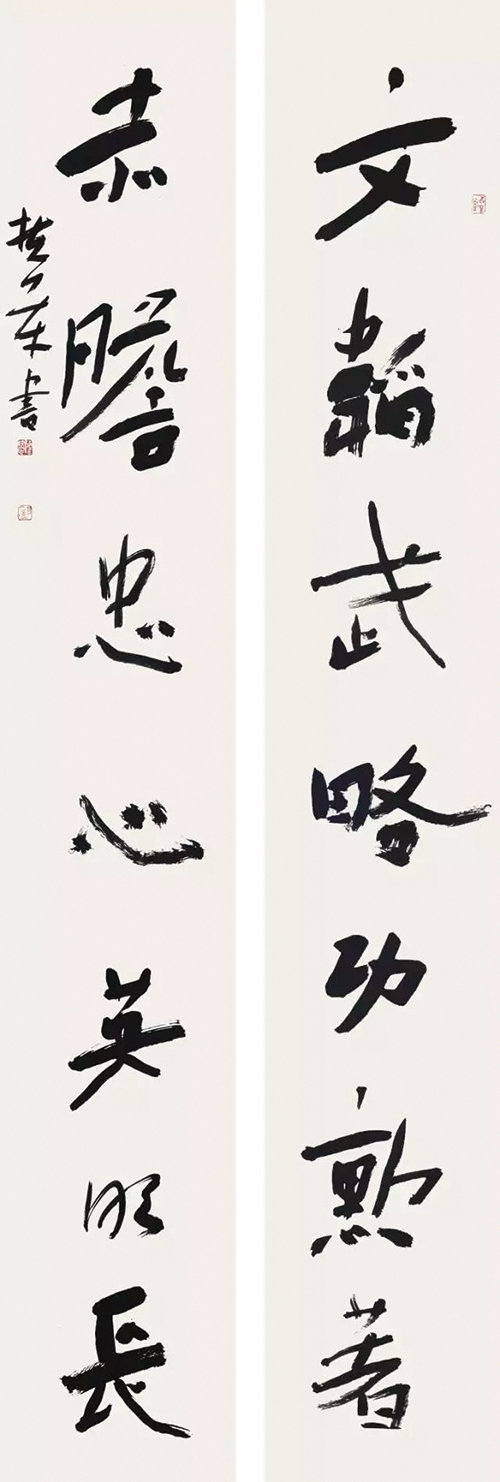 文韜武略功勳著
赤膽忠心英明長
書